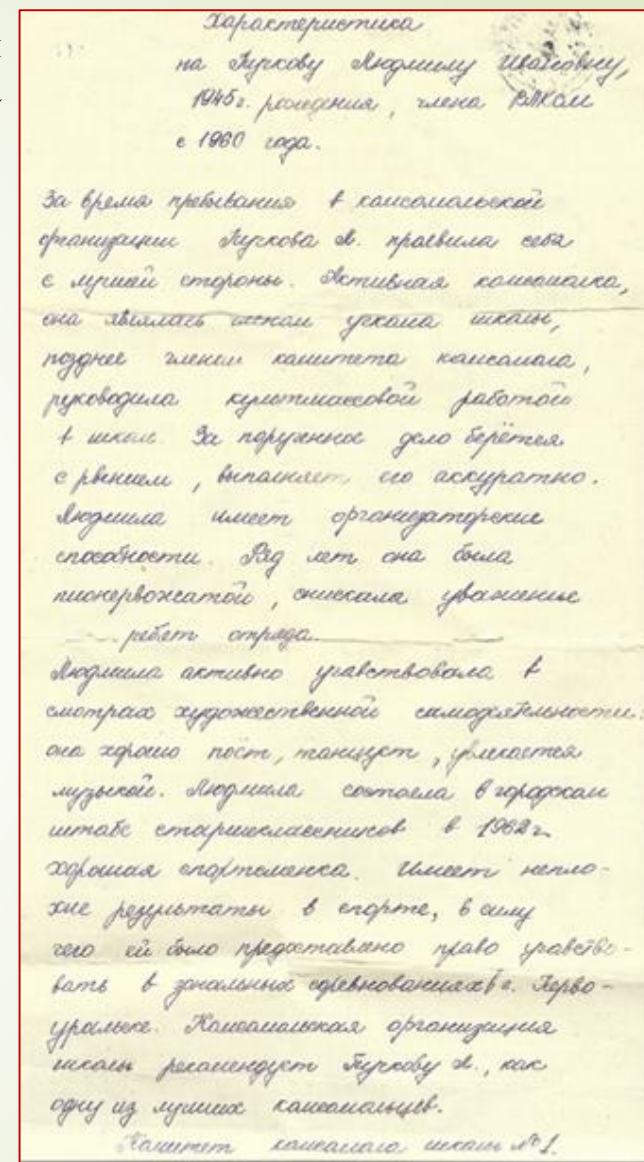 Характеристика
на Пучкову Людмилу Ивановну,
1945г. рождения, члена ВЛКСМ
с 1960 года.
За время пребывания в комсомольской
организации Пучкова Л. проявила себя
с лучшей стороны. Активная комсомолка,
она являлась членом учкома школы,
позднее членом комитета комсомола,
руководила культмассовой работой
в школе. За порученное дело берётся
с рвением, выполняет его аккуратно.
Людмила имеет организаторские
способности. Ряд лет она была
пионервожатой, снискала уважение
ребят отряда.
Людмила активно учавствовала в
смотрах художественной самодеятельности:
она хорошо поёт, танцует, увлекается
музыкой. Людмила состояла в городском
штабе старшеклассников в 1962г.
хорошая спортсменка. Имеет непло-
хие результаты в спорте, в силу
чего ей было предоставлено право учавство-
вать в зональных соревнованиях в г. Перво-
уральске. Комсомольская организация
школы рекомендует Пучкову Л., как
одну из лучших комсомольцев.
Комитет комсомола школы №1.